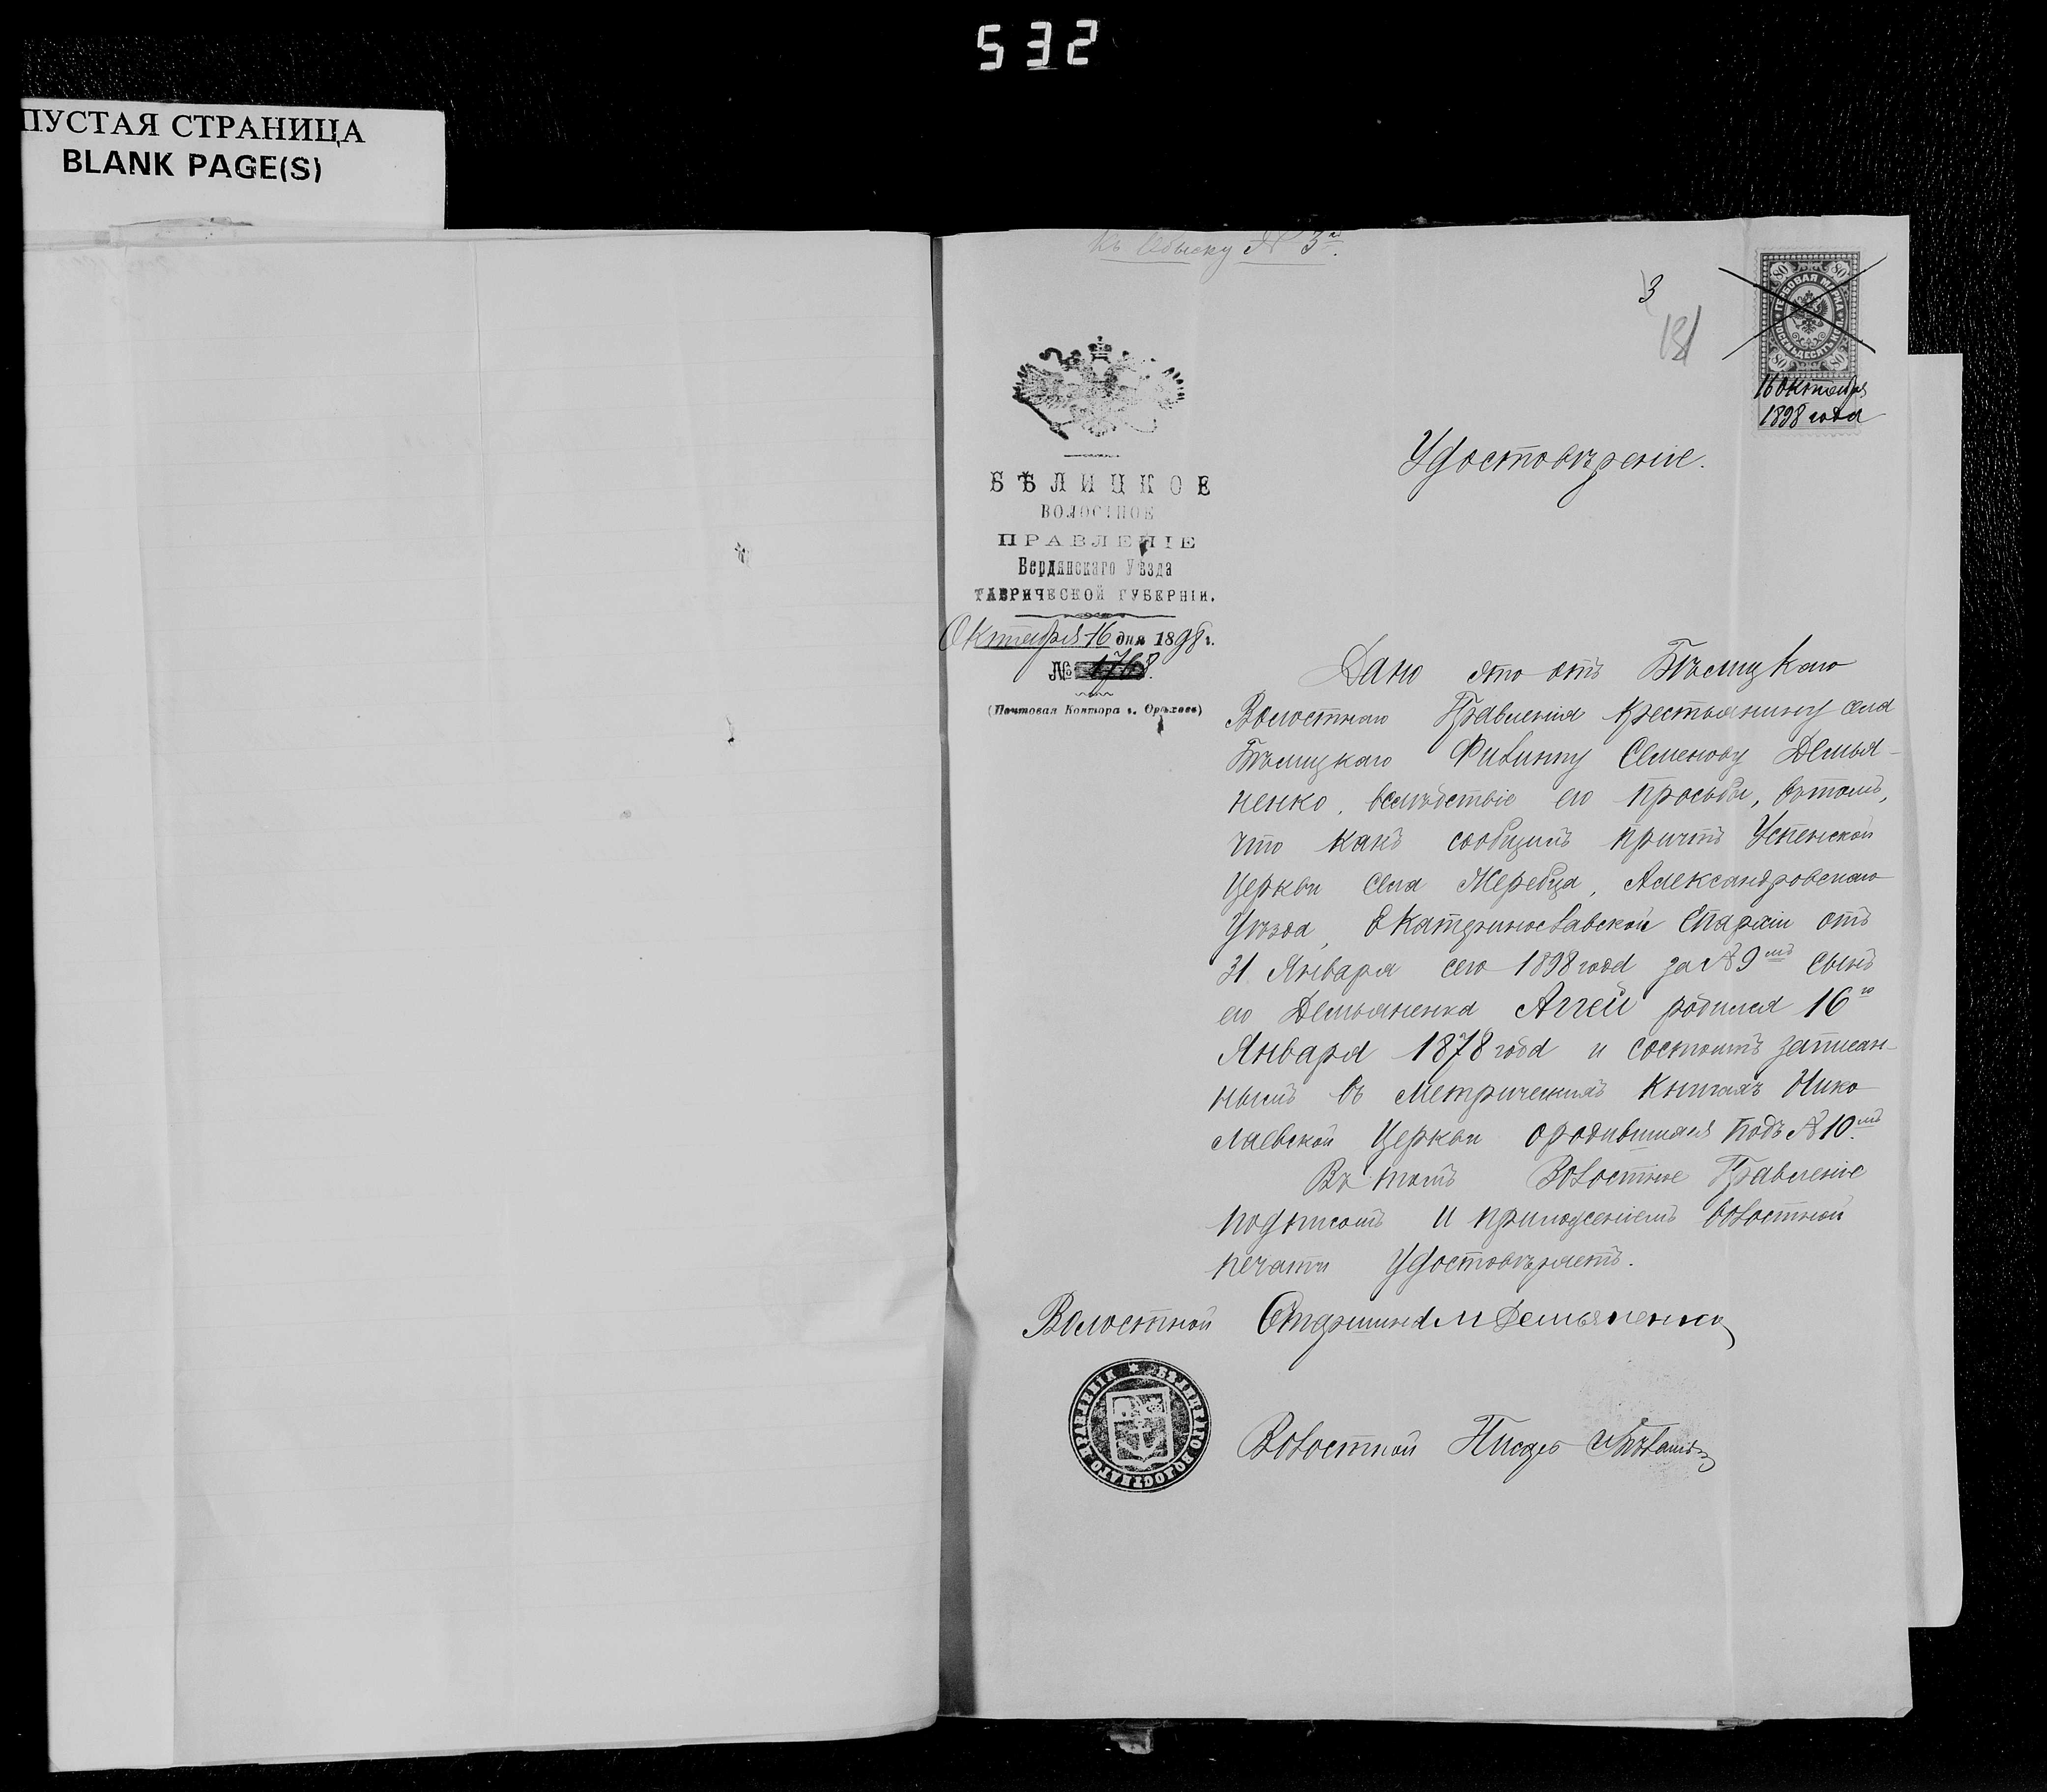 532
ПУСТАЯ СТРАНИЦА
BLANK PAGE(S)
Къ Обыску № 3й.
3
131
ГЕРБОВАЯ МАРКА
80 80
80 80
16 Октября
1898 года
БѢЛИЦКОЕ
ВОЛОСТНОЕ
ПРАВЛЕНІЕ
Бердянскаго Уѣзда
ТАВРИЧЕСКОЙ ГУБЕРНІИ.
Октября 16 дня 1898 г.
№ 1768.
(Почтовая Контора г. Орѣховъ)
Удостовѣреніе.
Дано это отъ Бѣлицкаго
Волостного Правленія крестьянину села
Бѣлицкаго Филиппу Семенову Демья-
ненко, вслѣдствіе его просьбы, вътомъ,
что какъ сообщилъ причтъ Успенской
Церкви села Жеребца, Александровскаго
Уѣзда, Екатеринославской Епархіи отъ
31 Января сего 1898 года за № 9мъ сынъ
его Демьяненка Аггей родился 16го
Января 1878 года и состоитъ записан-
нымъ въ Метрическихъ Книгахъ Нико
лаевской Церкви ородившихся подъ № 10мъ
Въ томъ Волостное Правленіе
подписомъ и приложеніемъ волостной
печати удостовѣряетъ.
Волостной Старшина М Демьяненко
БѢЛИЦКАГО ВОЛОСТНАГО ПРАВЛЕНІЯ
Волостной Писарь